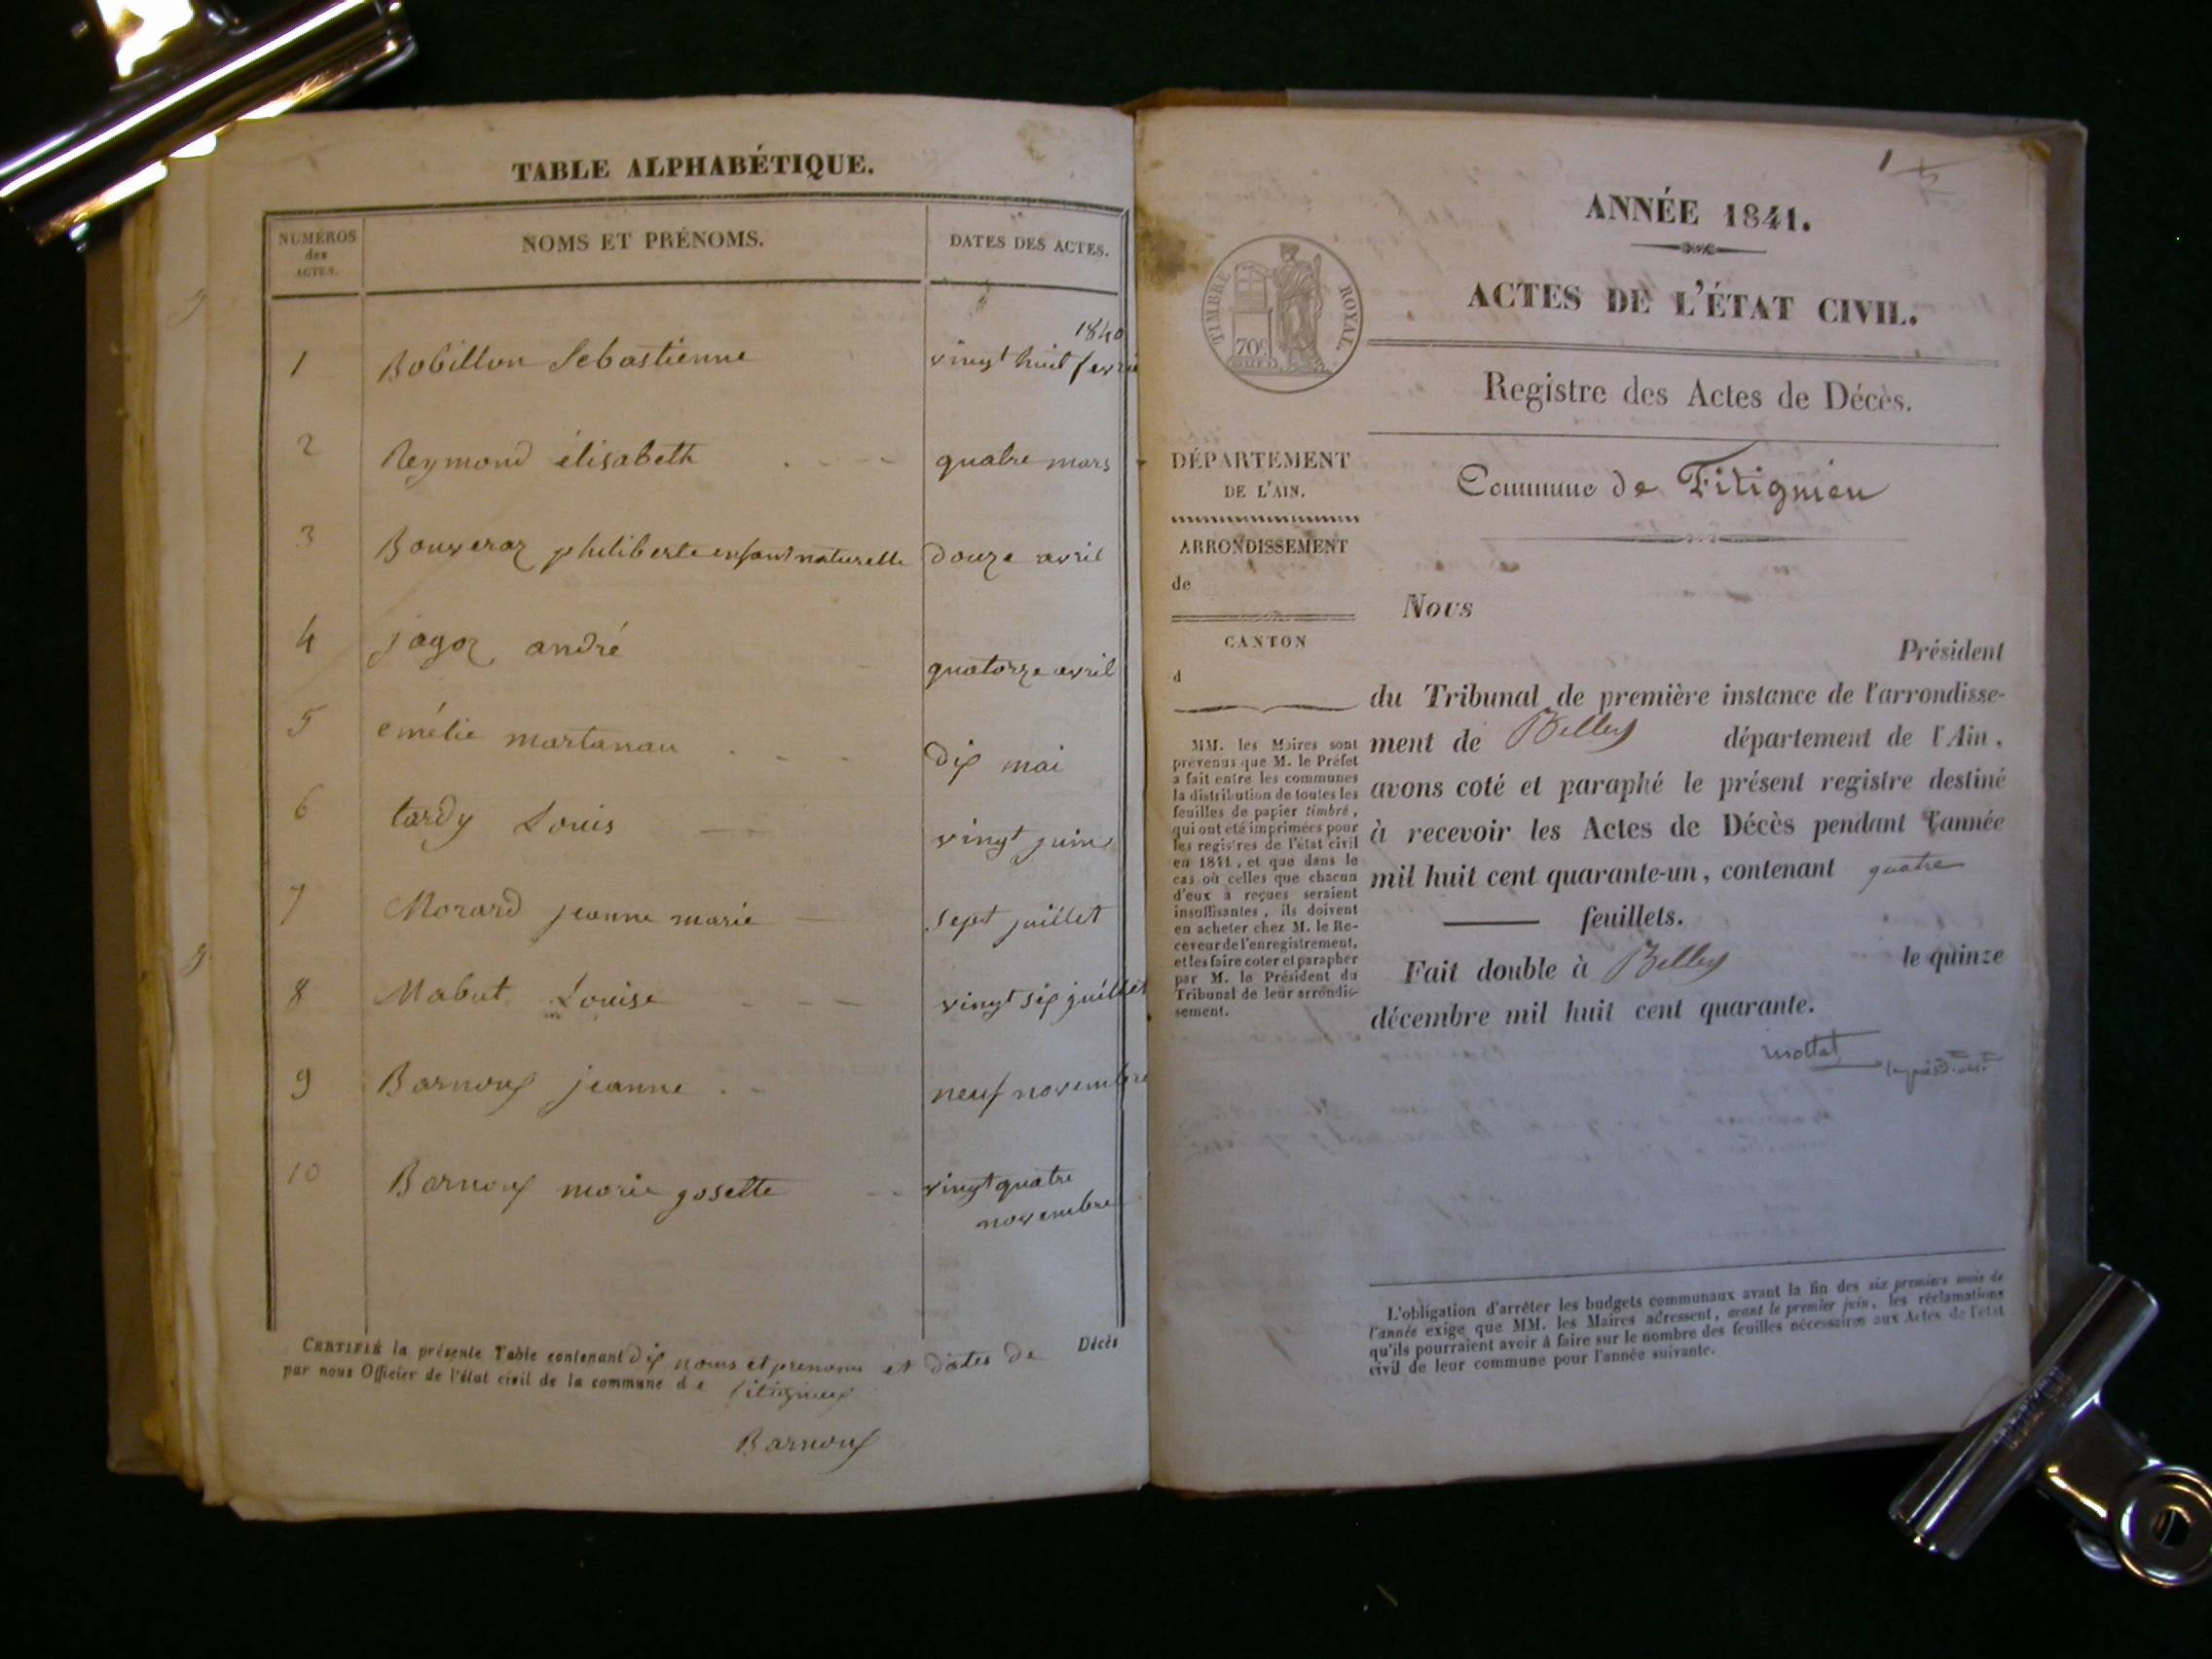 TABLE ALPHABÉTIQUE.
NUMÉROS
des
ACTES.
NOMS ET PRÉNOMS.
DATES DES ACTES.
1840
1 Bobillon Sebastienne vingt huit fevrie
2 Reymond élisabeth quatre mars
3 Bouveraz philiberte enfant naturelle douze avril
4 jagoz andré quatorze avril
5 emélie martanau dix mai
6 tardy Louis vingt juin
7 Morard jeanne marie sept juillet
8 Mabut Louise vingt six juillet
9 Barnoux jeanne neuf novembre
10 Barnoux marie gosette vingt quatre
novembre
CERTIFIÉ la présente Table contenant dix noms et prenoms et dates de Décès
par nous Officier de l'état civil de la commune de fitignieux
Barnoux
1
ANNÉE 1841.
TIMBRE ROYAL.
70c
ACTES DE L'ÉTAT CIVIL.
Registre des Actes de Décès.
Commune de Fitignieu
DÉPARTEMENT
DE L'AIN.
ARRONDISSEMENT
de
CANTON
d
MM. les Maires sont
prévenus que M. le Préfet
a fait entre les communes
la distribution de toutes les
feuilles de papier timbré,
qui ont été imprimées pour
les registres de l'état civil
en 1841, et que dans le
cas où celles que chacun
d'eux a reçues seraient
insuffisantes, ils doivent
en acheter chez M. le Re-
ceveur de l'enregistrement,
et les faire coter et parapher
par M. le Président du
Tribunal de leur arrondis-
sement.
Nous
Président
du Tribunal de première instance de l'arrondisse-
ment de Belley département de l'Ain,
avons coté et paraphé le présent registre destiné
à recevoir les Actes de Décès pendant l'année
mil huit cent quarante-un, contenant quatre
feuillets.
Fait double à Belley le quinze
décembre mil huit cent quarante.
L'obligation d'arrêter les budgets communaux avant la fin des six premiers mois de
l'année exige que MM. les Maires adressent, avant le premier juin, les réclamations
qu'ils pourraient avoir à faire sur le nombre des feuilles nécessaires aux Actes de l'état
civil de leur commune pour l'année suivante.